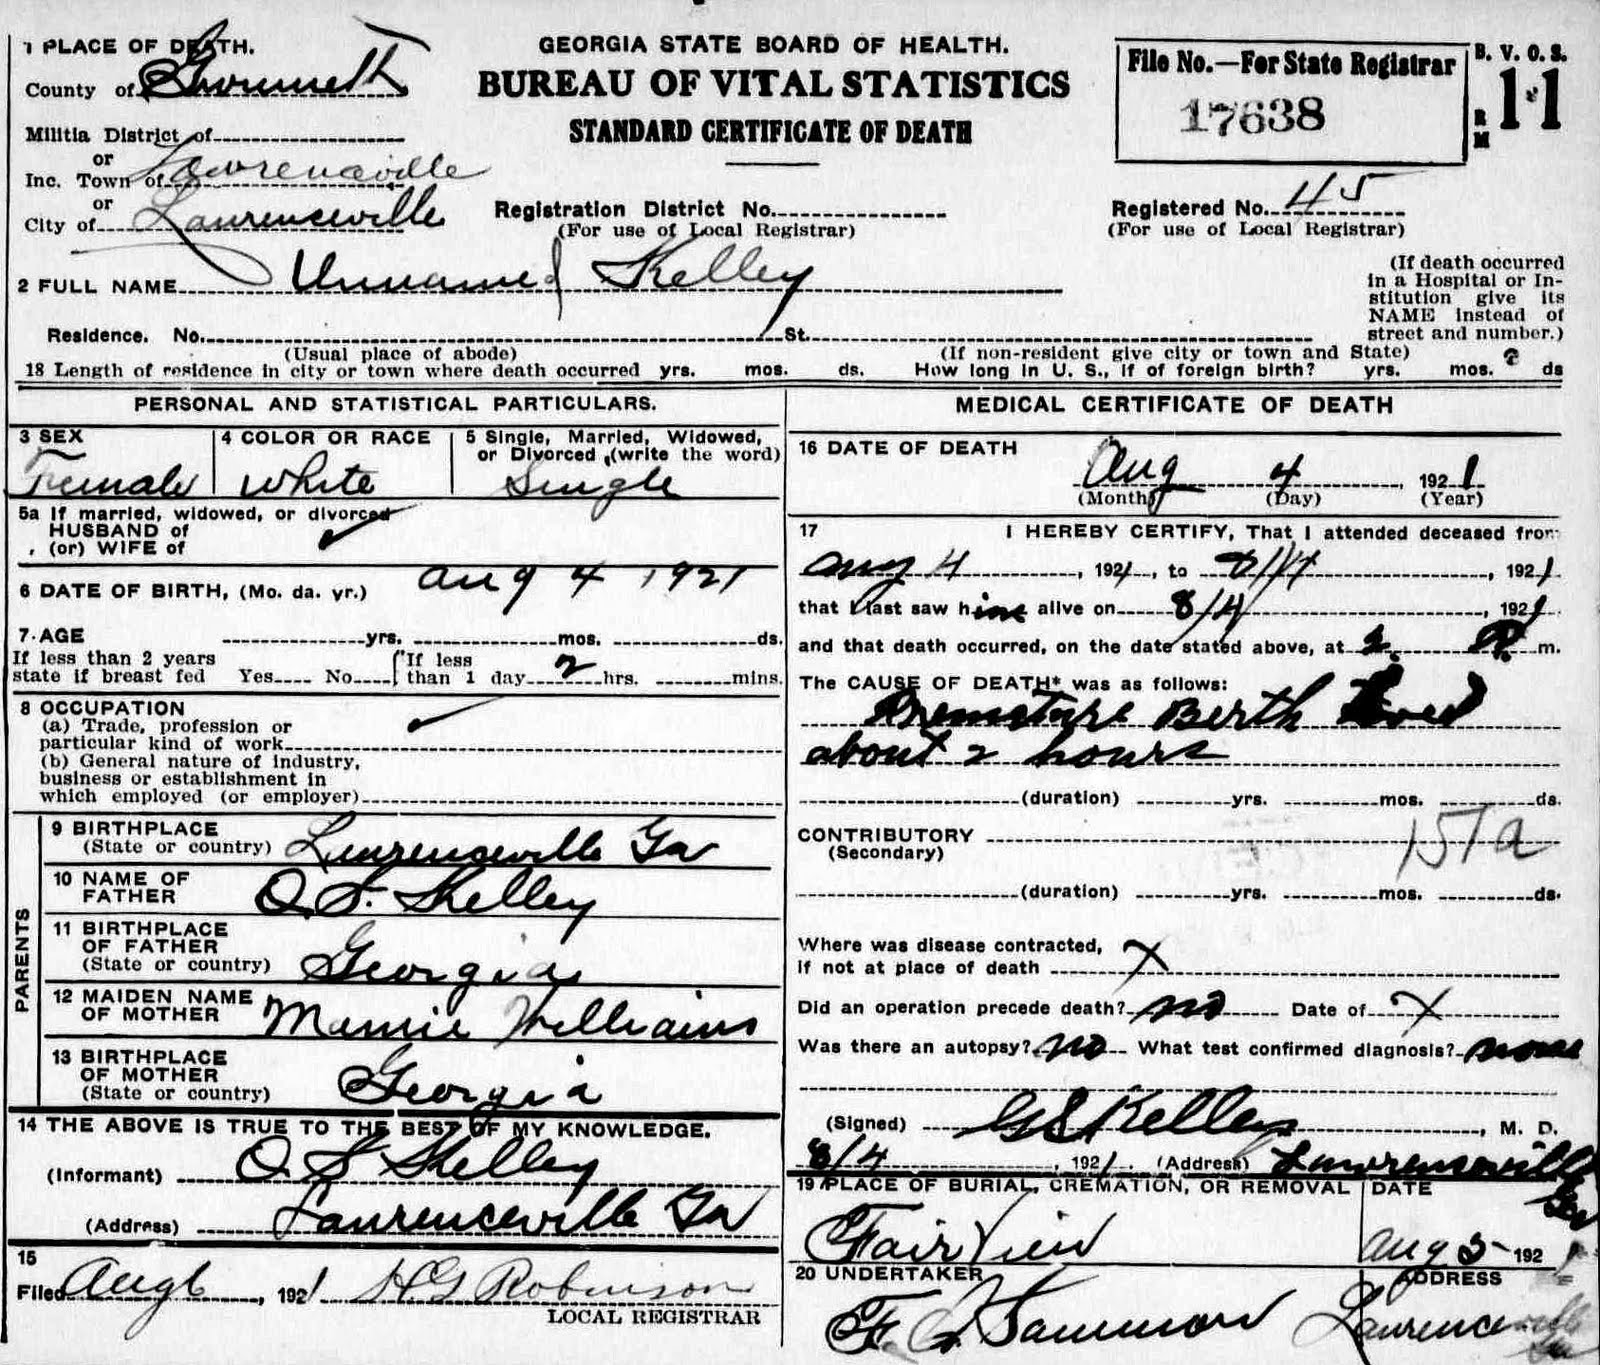 GEORGIA STATE BOARD OF HEALTH.
BUREAU OF VITAL STATISTICS
STANDARD CERTIFICATE OF DEATH
File No.—For State Registrar
17638
B. V. O. S.
R
M
11
1 PLACE OF DEATH.
County of Gwinnett
Militia District of
or
Inc. Town of Lawrenceville
or
City of Lawrenceville
Registration District No.
(For use of Local Registrar)
Registered No. 45
(For use of Local Registrar)
2 FULL NAME Unnamed Kelley
(If death occurred
in a Hospital or In-
stitution give its
NAME instead of
street and number.)
Residence. No. St.
(Usual place of abode) (If non-resident give city or town and State)
18 Length of residence in city or town where death occurred yrs. mos. ds. How long in U. S., if of foreign birth? yrs. mos. ? ds
PERSONAL AND STATISTICAL PARTICULARS.
3 SEX
Female
4 COLOR OR RACE
White
5 Single, Married, Widowed,
or Divorced, (write the word)
Single
5a If married, widowed, or divorced
HUSBAND of
(or) WIFE of
6 DATE OF BIRTH, (Mo. da. yr.) Aug 4 1921
7 AGE yrs. mos. ds.
If less than 2 years
state if breast fed Yes No
If less
than 1 day 2 hrs. mins.
8 OCCUPATION
(a) Trade, profession or
particular kind of work
(b) General nature of industry,
business or establishment in
which employed (or employer)
PARENTS
9 BIRTHPLACE
(State or country) Lawrenceville Ga
10 NAME OF
FATHER O. S. Kelley
11 BIRTHPLACE
OF FATHER
(State or country) Georgia
12 MAIDEN NAME
OF MOTHER Mamie Williams
13 BIRTHPLACE
OF MOTHER
(State or country) Georgia
14 THE ABOVE IS TRUE TO THE BEST OF MY KNOWLEDGE.
(Informant) O. S. Kelley
(Address) Lawrenceville Ga
15
Filed Aug 6, 1921 H G Robinson
LOCAL REGISTRAR
MEDICAL CERTIFICATE OF DEATH
16 DATE OF DEATH
Aug 4, 1921
(Month) (Day) (Year)
17 I HEREBY CERTIFY, That I attended deceased from
Aug 4, 1921, to 8/4, 1921
that I last saw him alive on 8/4, 1921
and that death occurred, on the date stated above, at 2. P. m.
The CAUSE OF DEATH* was as follows:
Premature Berth Lived
about 2 hours
(duration) yrs. mos. ds.
CONTRIBUTORY
(Secondary)
151a
(duration) yrs. mos. ds.
Where was disease contracted,
if not at place of death X
Did an operation precede death? no Date of X
Was there an autopsy? no What test confirmed diagnosis? none
(Signed) G S Kelley, M. D.
8/4, 1921. (Address) Lawrenceville
Ga
19 PLACE OF BURIAL, CREMATION, OR REMOVAL
Fair View
DATE
Aug 5 192
20 UNDERTAKER
F. Sammon
ADDRESS
Lawrenceville
Ga